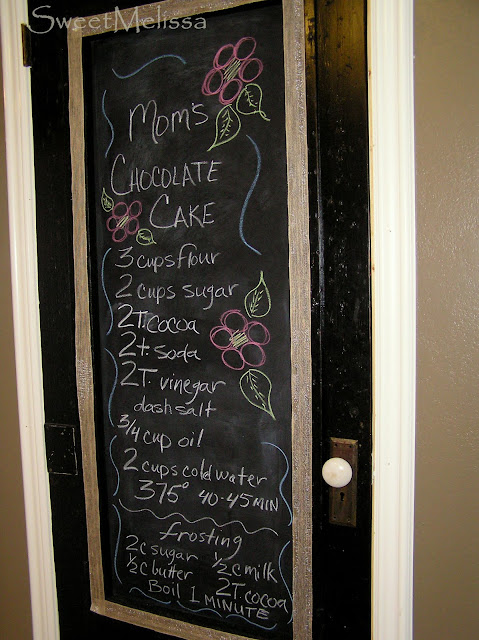 SweetMelissa
Mom's
CHOCOLATE
CAKE
3 cups flour
2 cups sugar
2T. cocoa
2t. soda
2T. vinegar
dash salt
3/4 cup oil
2 cups cold water
375° 40-45 MIN
frosting
2c sugar 1/2c milk
1/2c butter 2T. cocoa
Boil 1 MINUTE